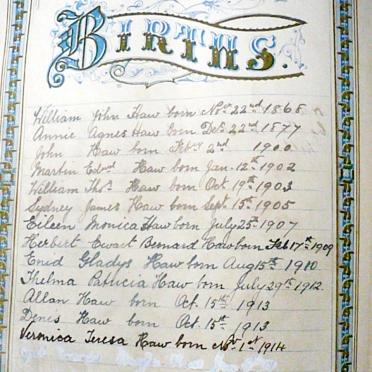 BIRTHS.
William John Haw born Nov 22nd 1868
Annie Agnes Haw born Dec 22nd 1877
John Haw born Feby 2nd 1900
Martin Edwd Haw born Jan. 12th 1902
William Thos Haw born Oct. 19th 1903
Sydney James Haw born Sept. 15th 1905
Eileen Monica Haw born July 25th 1907
Herbert Ewart Bernard Haw born Feb 17th 1909
Enid Gladys Haw born Aug 15th 1910
Thelma Patricia Haw born July 29th 1912
Allan Haw born Oct. 15th 1913
Denis Haw born Oct. 15th 1913
Veronica Teresa Haw born Nov 1st 1914